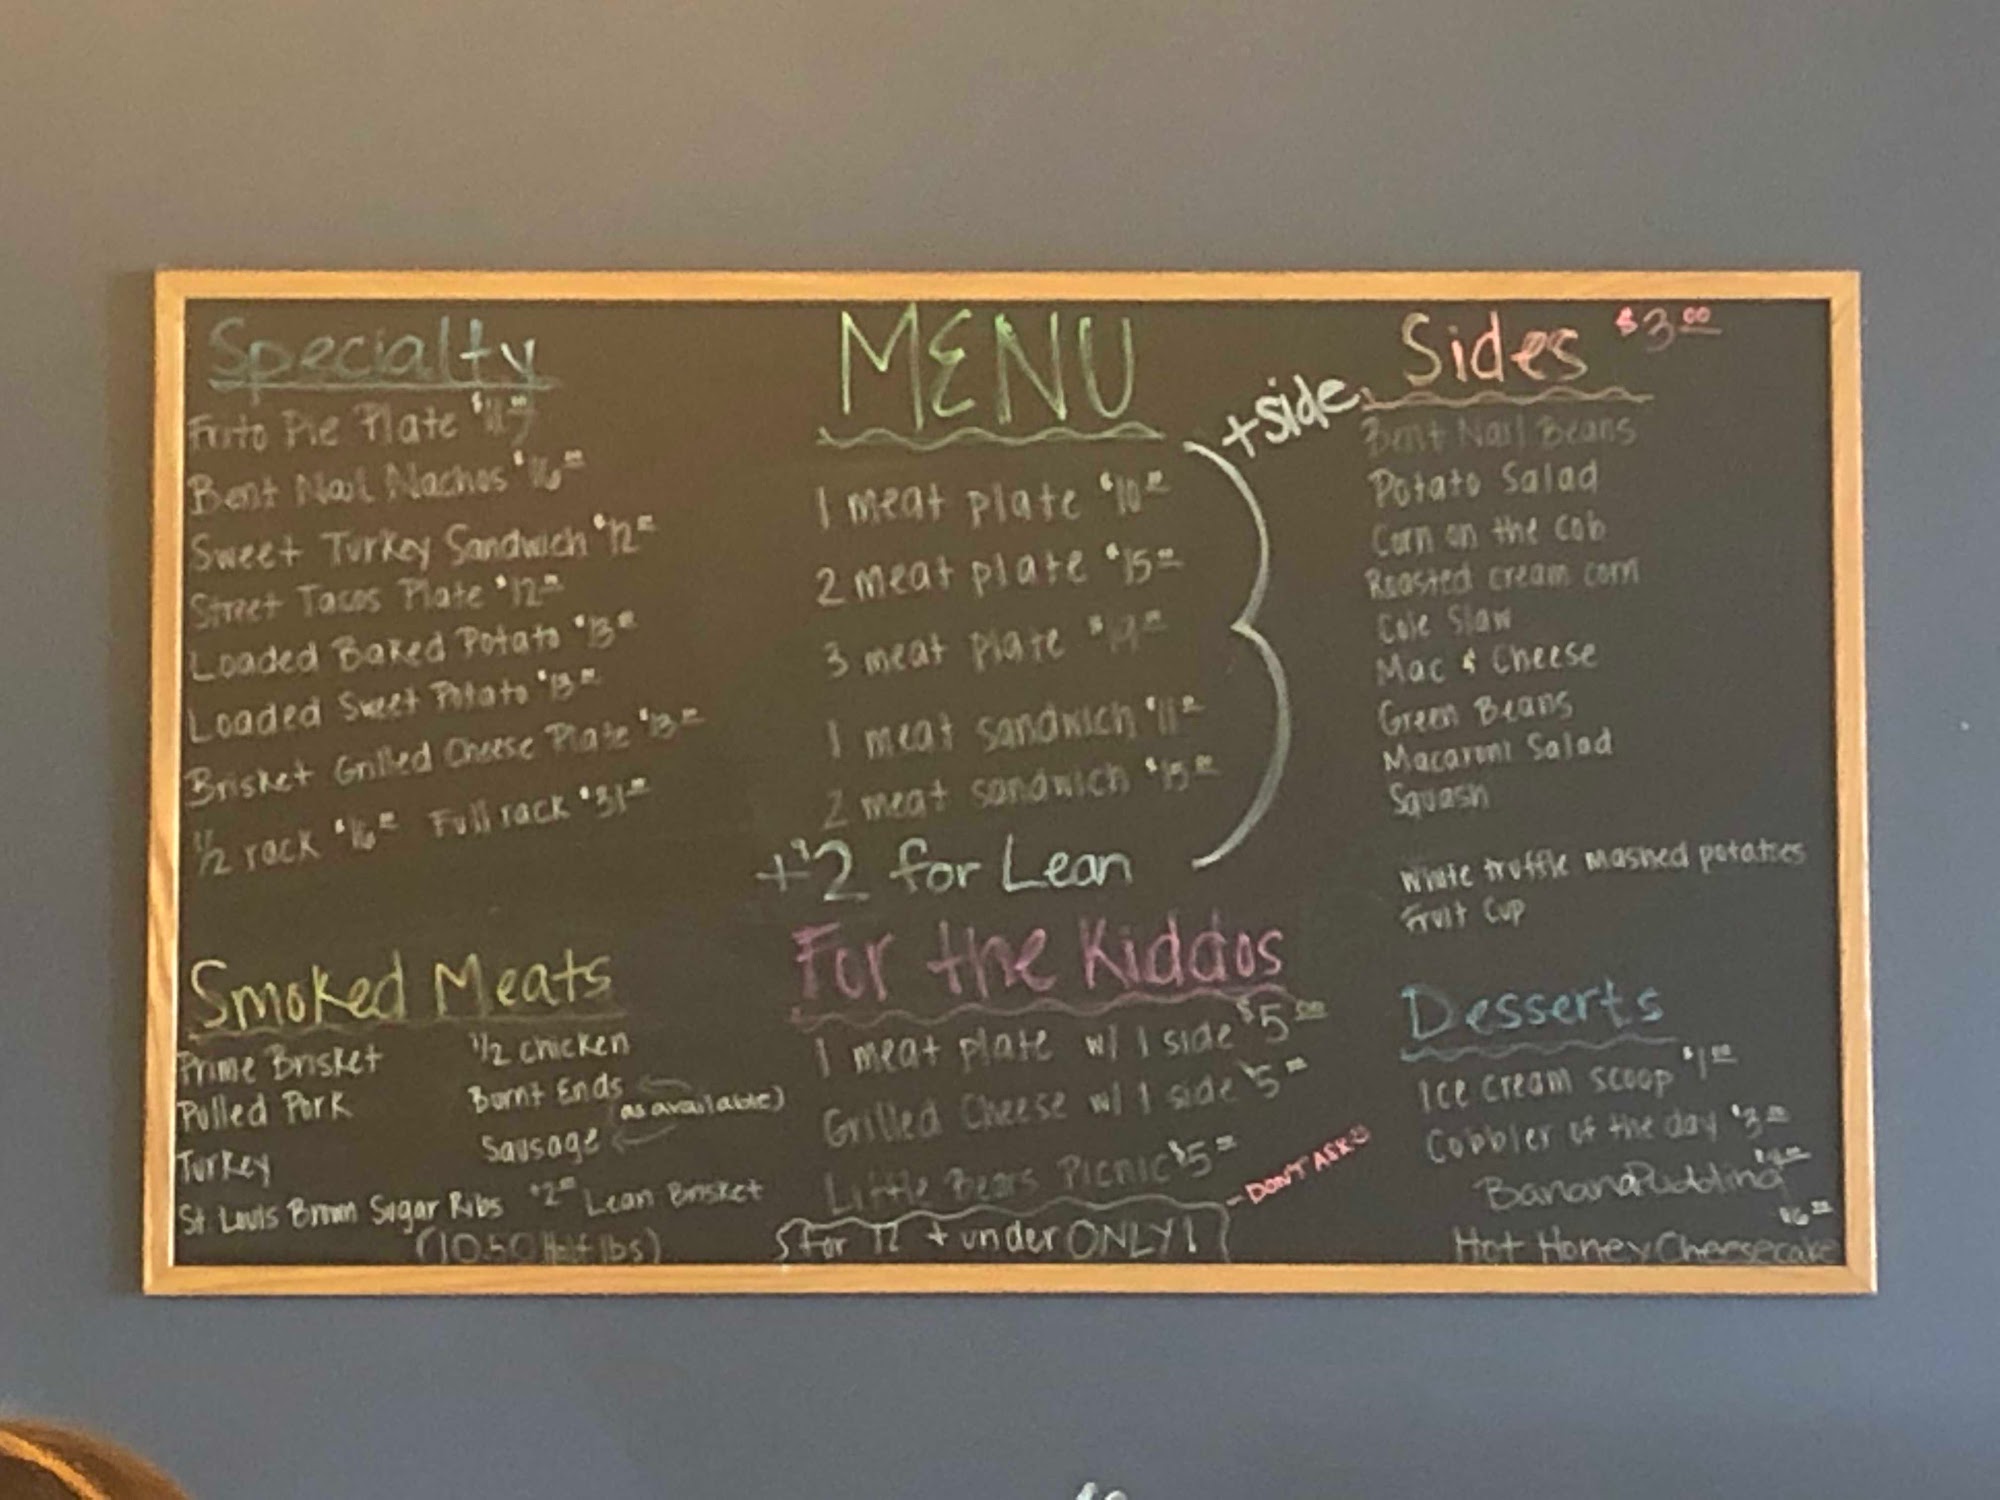 Specialty
Frito Pie Plate
Bent Nail Nachos $16.00
Sweet Turkey Sandwich $12.00
Street Tacos Plate $12.00
Loaded Baked Potato $13.00
Loaded Sweet Potato $13.00
Brisket Grilled Cheese Plate $13.00
1/2 rack $16.00 Full rack $31.00
Smoked Meats
Prime Brisket
Pulled Pork
Turkey
St Louis Brown Sugar Ribs
1/2 chicken
Burnt Ends
(as available)
Sausage
$2.00 Lean Brisket
(10.50 Half lbs)
MENU
+side
1 meat plate $10.00
2 meat plate $15.00
3 meat plate $19.00
1 meat sandwich $11.00
2 meat sandwich $15.00
+$2 for Lean
For the Kiddos
1 meat plate w/ 1 side $5.00
Grilled Cheese w/ 1 side $5.00
Little Bears Picnic $5.00
- DON'T ASK
for 12 + under ONLY!
Sides $3.00
Bent Nail Beans
Potato Salad
Corn on the cob
Roasted cream corn
Cole Slaw
Mac & Cheese
Green Beans
Macaroni Salad
Squash
White truffle mashed potatoes
Fruit Cup
Desserts
Ice cream scoop $1.00
Cobbler of the day $3.00
Banana Pudding
$6.00
Hot Honey Cheesecake